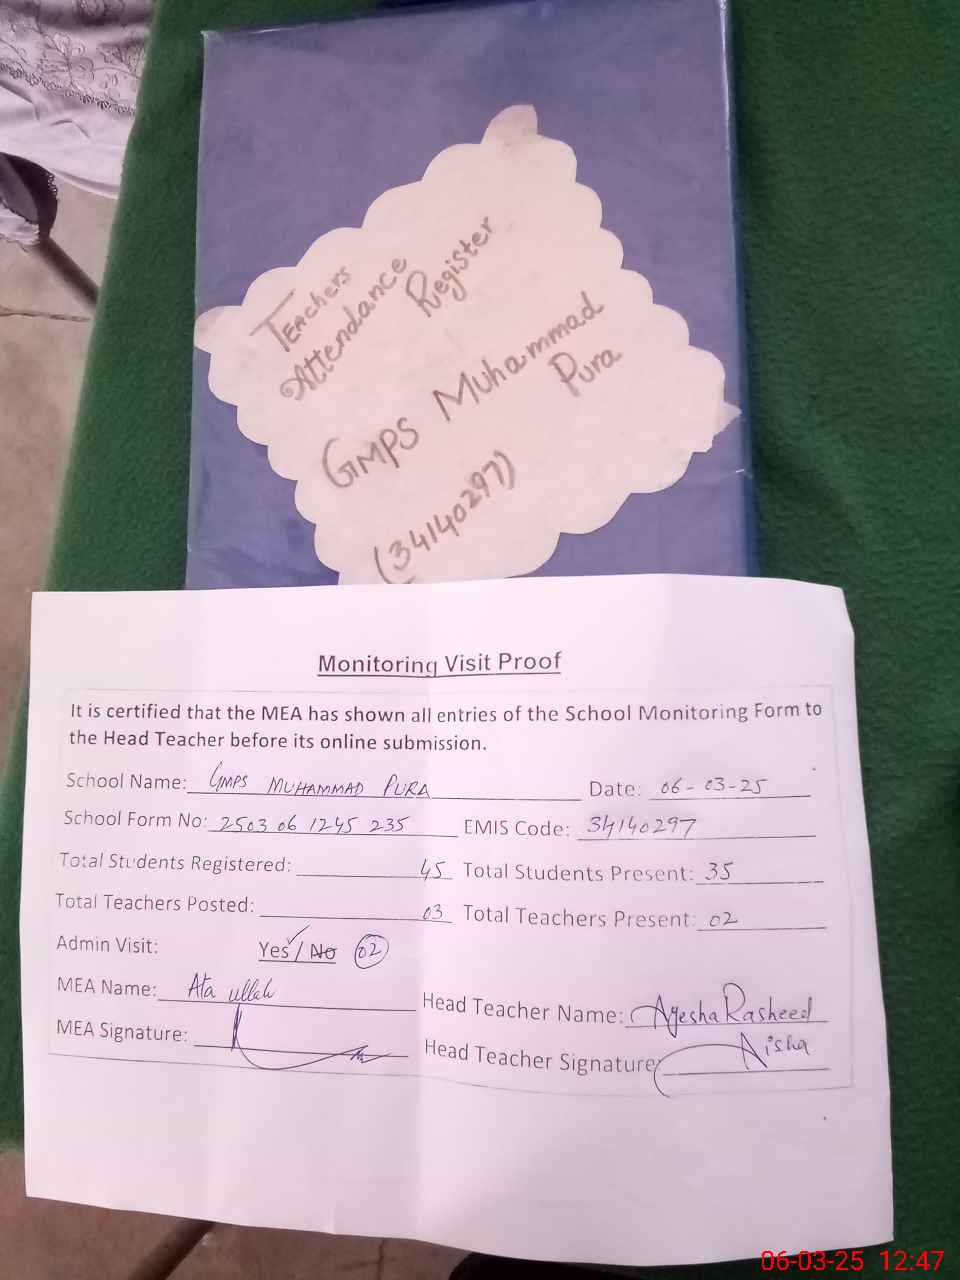 Teachers
Attendance
Register
GMPS Muhammad
Pura
(34140297)
Monitoring Visit Proof
It is certified that the MEA has shown all entries of the School Monitoring Form to
the Head Teacher before its online submission.
School Name: GMPS MUHAMMAD PURA Date: 06-03-25
School Form No: 2503 06 1245 235 EMIS Code: 34140297
Total Students Registered: 45 Total Students Present: 35
Total Teachers Posted: 03 Total Teachers Present: 02
Admin Visit: Yes / No 02
MEA Name: Ata ullah Head Teacher Name: Ayesha Rasheed
MEA Signature: Head Teacher Signature: Aisha
06-03-25 12:47